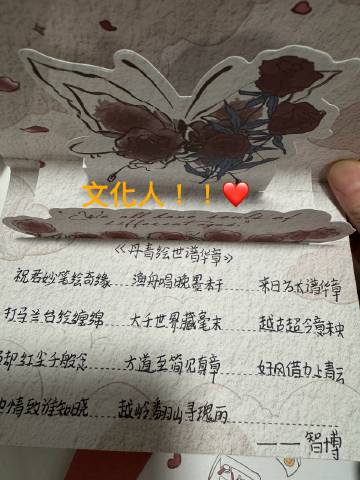 文化人！！❤️
We all have
《丹青绘世谱华章》
祝君妙笔绘奇缘 渔舟唱晚墨未干 来日方太谱华章
打马兰台绘缠绵 大千世界藏毫末 越古超今意未央
却红尘千般念 大道至简见真章 好风借力上青云
情致谁知晓 越岭翻山寻瑰丽
——智博